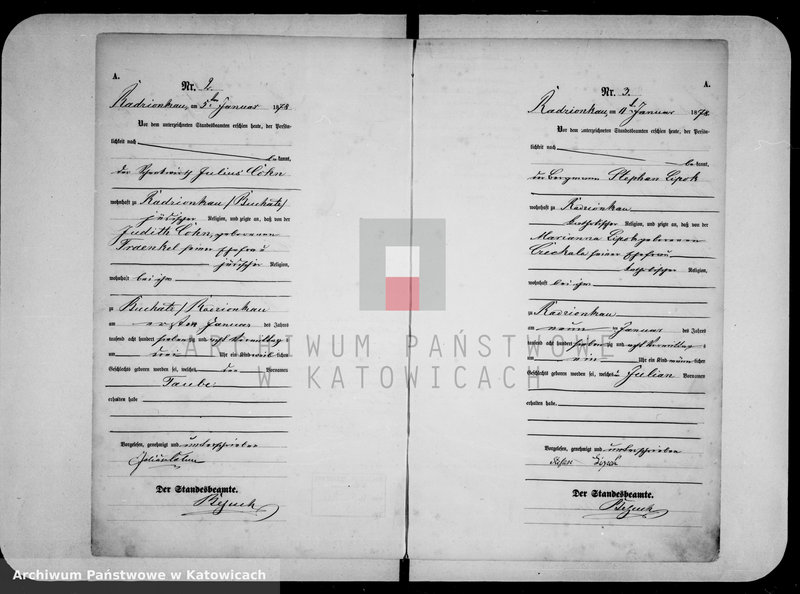 A.
Nr. 2.
Radzionkau, am 5ten Januar 1878
Vor dem unterzeichneten Standesbeamten erschien heute, der Persön-
lichkeit nach
bekannt,
der Julius Cohn
wohnhaft zu Radzionkau /Buchatz/
jüdischer Religion, und zeigte an, daß von der
Judith Cohn, geborenen
Fraenkel seiner Ehefrau
jüdischer Religion,
wohnhaft bei ihm
zu Buchatz/Radzionkau
am ersten Januar des Jahres
tausend acht hundert siebenzig und acht Vormittag s
um Uhr ein Kind weiblichen
Geschlechts geboren worden sei, welches Vornamen
Taube
erhalten habe
Vorgelesen, genehmigt und unterschrieben
Der Standesbeamte.
A.
Nr. 3.
Radzionkau, am 11t Januar 1878
Vor dem unterzeichneten Standesbeamten erschien heute, der Persön-
lichkeit nach
bekannt,
der Bergmann Stephan Cipok
wohnhaft zu Radzionkau
katholischer Religion, und zeigte an, daß von der
Marianna Cipok geborenen
seiner Ehefrau
katholischer Religion,
wohnhaft bei ihm
zu Radzionkau
am neun ten Januar des Jahres
tausend acht hundert siebenzig und acht Vormittag s
um ein Uhr ein Kind männlichen
Geschlechts geboren worden sei, welches Julian Vornamen
erhalten habe.
Vorgelesen, genehmigt und unterschrieben
Der Standesbeamte.
ARCHIWUM PAŃSTWOWE
W KATOWICACH
Archiwum Państwowe w Katowicach